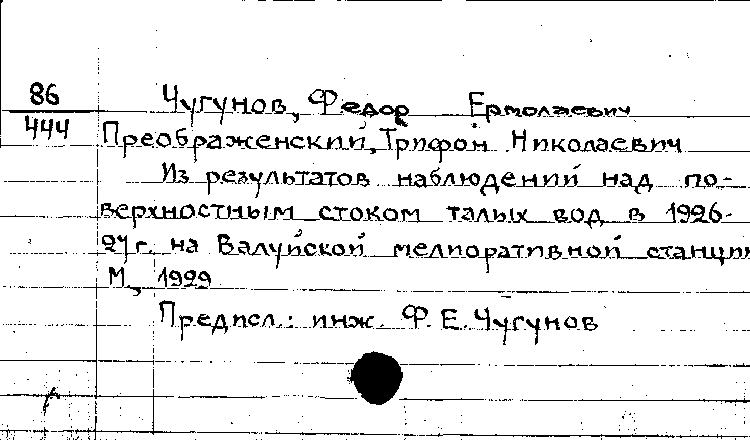 86
444
Чугунов, Федор Ермолаевич
Преображенский, Трифон Николаевич
Из результатов наблюдений над по-
верхностным стоком талых вод в 1926-
27 г. на Валуйской мелиоративной станции
М., 1929
Предисл.: инж. Ф. Е. Чугунов